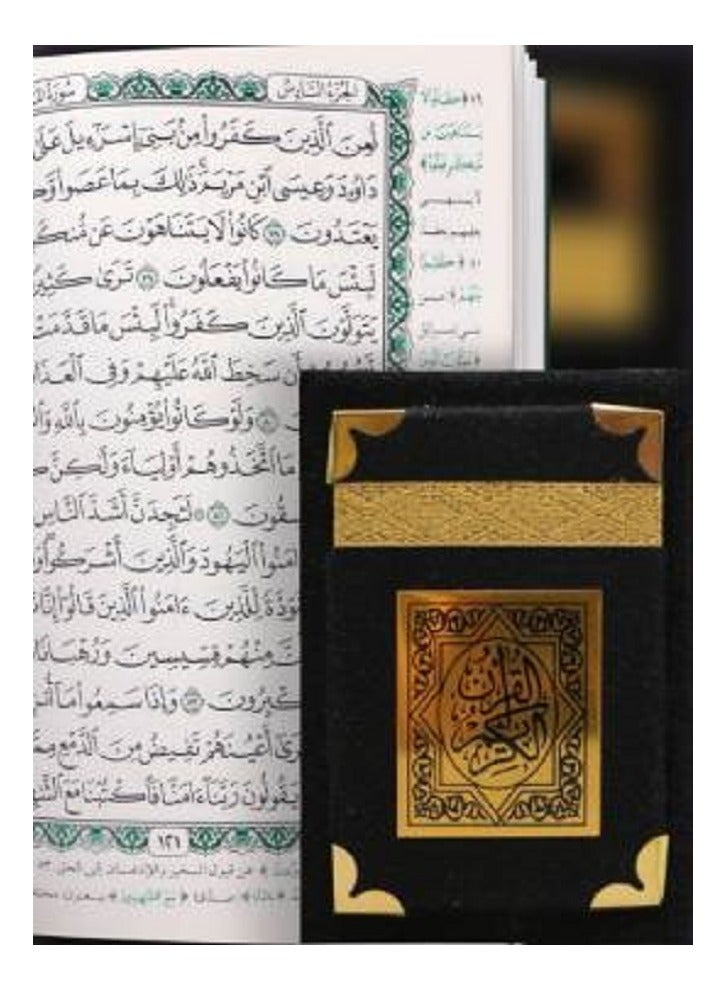 الجزء السادس
لُعِنَ ٱلَّذِينَ كَفَرُوا۟ مِنۢ بَنِىٓ إِسْرَٰٓءِيلَ عَلَىٰ
دَاوُۥدَ وَعِيسَى ٱبْنِ مَرْيَمَ ذَٰلِكَ بِمَا عَصَوا۟ وَّكَ
يَعْتَدُونَ ٧٨ كَانُوا۟ لَا يَتَنَاهَوْنَ عَن مُّنكَ
لَبِئْسَ مَا كَانُوا۟ يَفْعَلُونَ ٧٩ تَرَىٰ كَثِيرً
يَتَوَلَّوْنَ ٱلَّذِينَ كَفَرُوا۟ لَبِئْسَ مَا قَدَّمَتْ
أَن سَخِطَ ٱللَّهُ عَلَيْهِمْ وَفِى ٱلْعَذَا
٨٠ وَلَوْ كَانُوا۟ يُؤْمِنُونَ بِٱللَّهِ وَٱل
مَا ٱتَّخَذُوهُمْ أَوْلِيَآءَ وَلَٰكِنَّ كَ
سِقُونَ ٨١ لَتَجِدَنَّ أَشَدَّ ٱلنَّاسِ
ءَامَنُوا۟ ٱلْيَهُودَ وَٱلَّذِينَ أَشْرَكُوا۟ وَ
وَدَّةً لِّلَّذِينَ ءَامَنُوا۟ ٱلَّذِينَ قَالُوٓا۟ إِنَّا
مِنْهُمْ قِسِّيسِينَ وَرُهْبَانًا
كْبِرُونَ ٨٢ وَإِذَا سَمِعُوا۟ مَآ أُنزِ
رَىٰٓ أَعْيُنَهُمْ تَفِيضُ مِنَ ٱلدَّمْعِ مِمَّا
يَقُولُونَ رَبَّنَآ ءَامَنَّا فَٱكْتُبْنَا مَعَ ٱلشَّ
١٢١
القرآن
الكريم